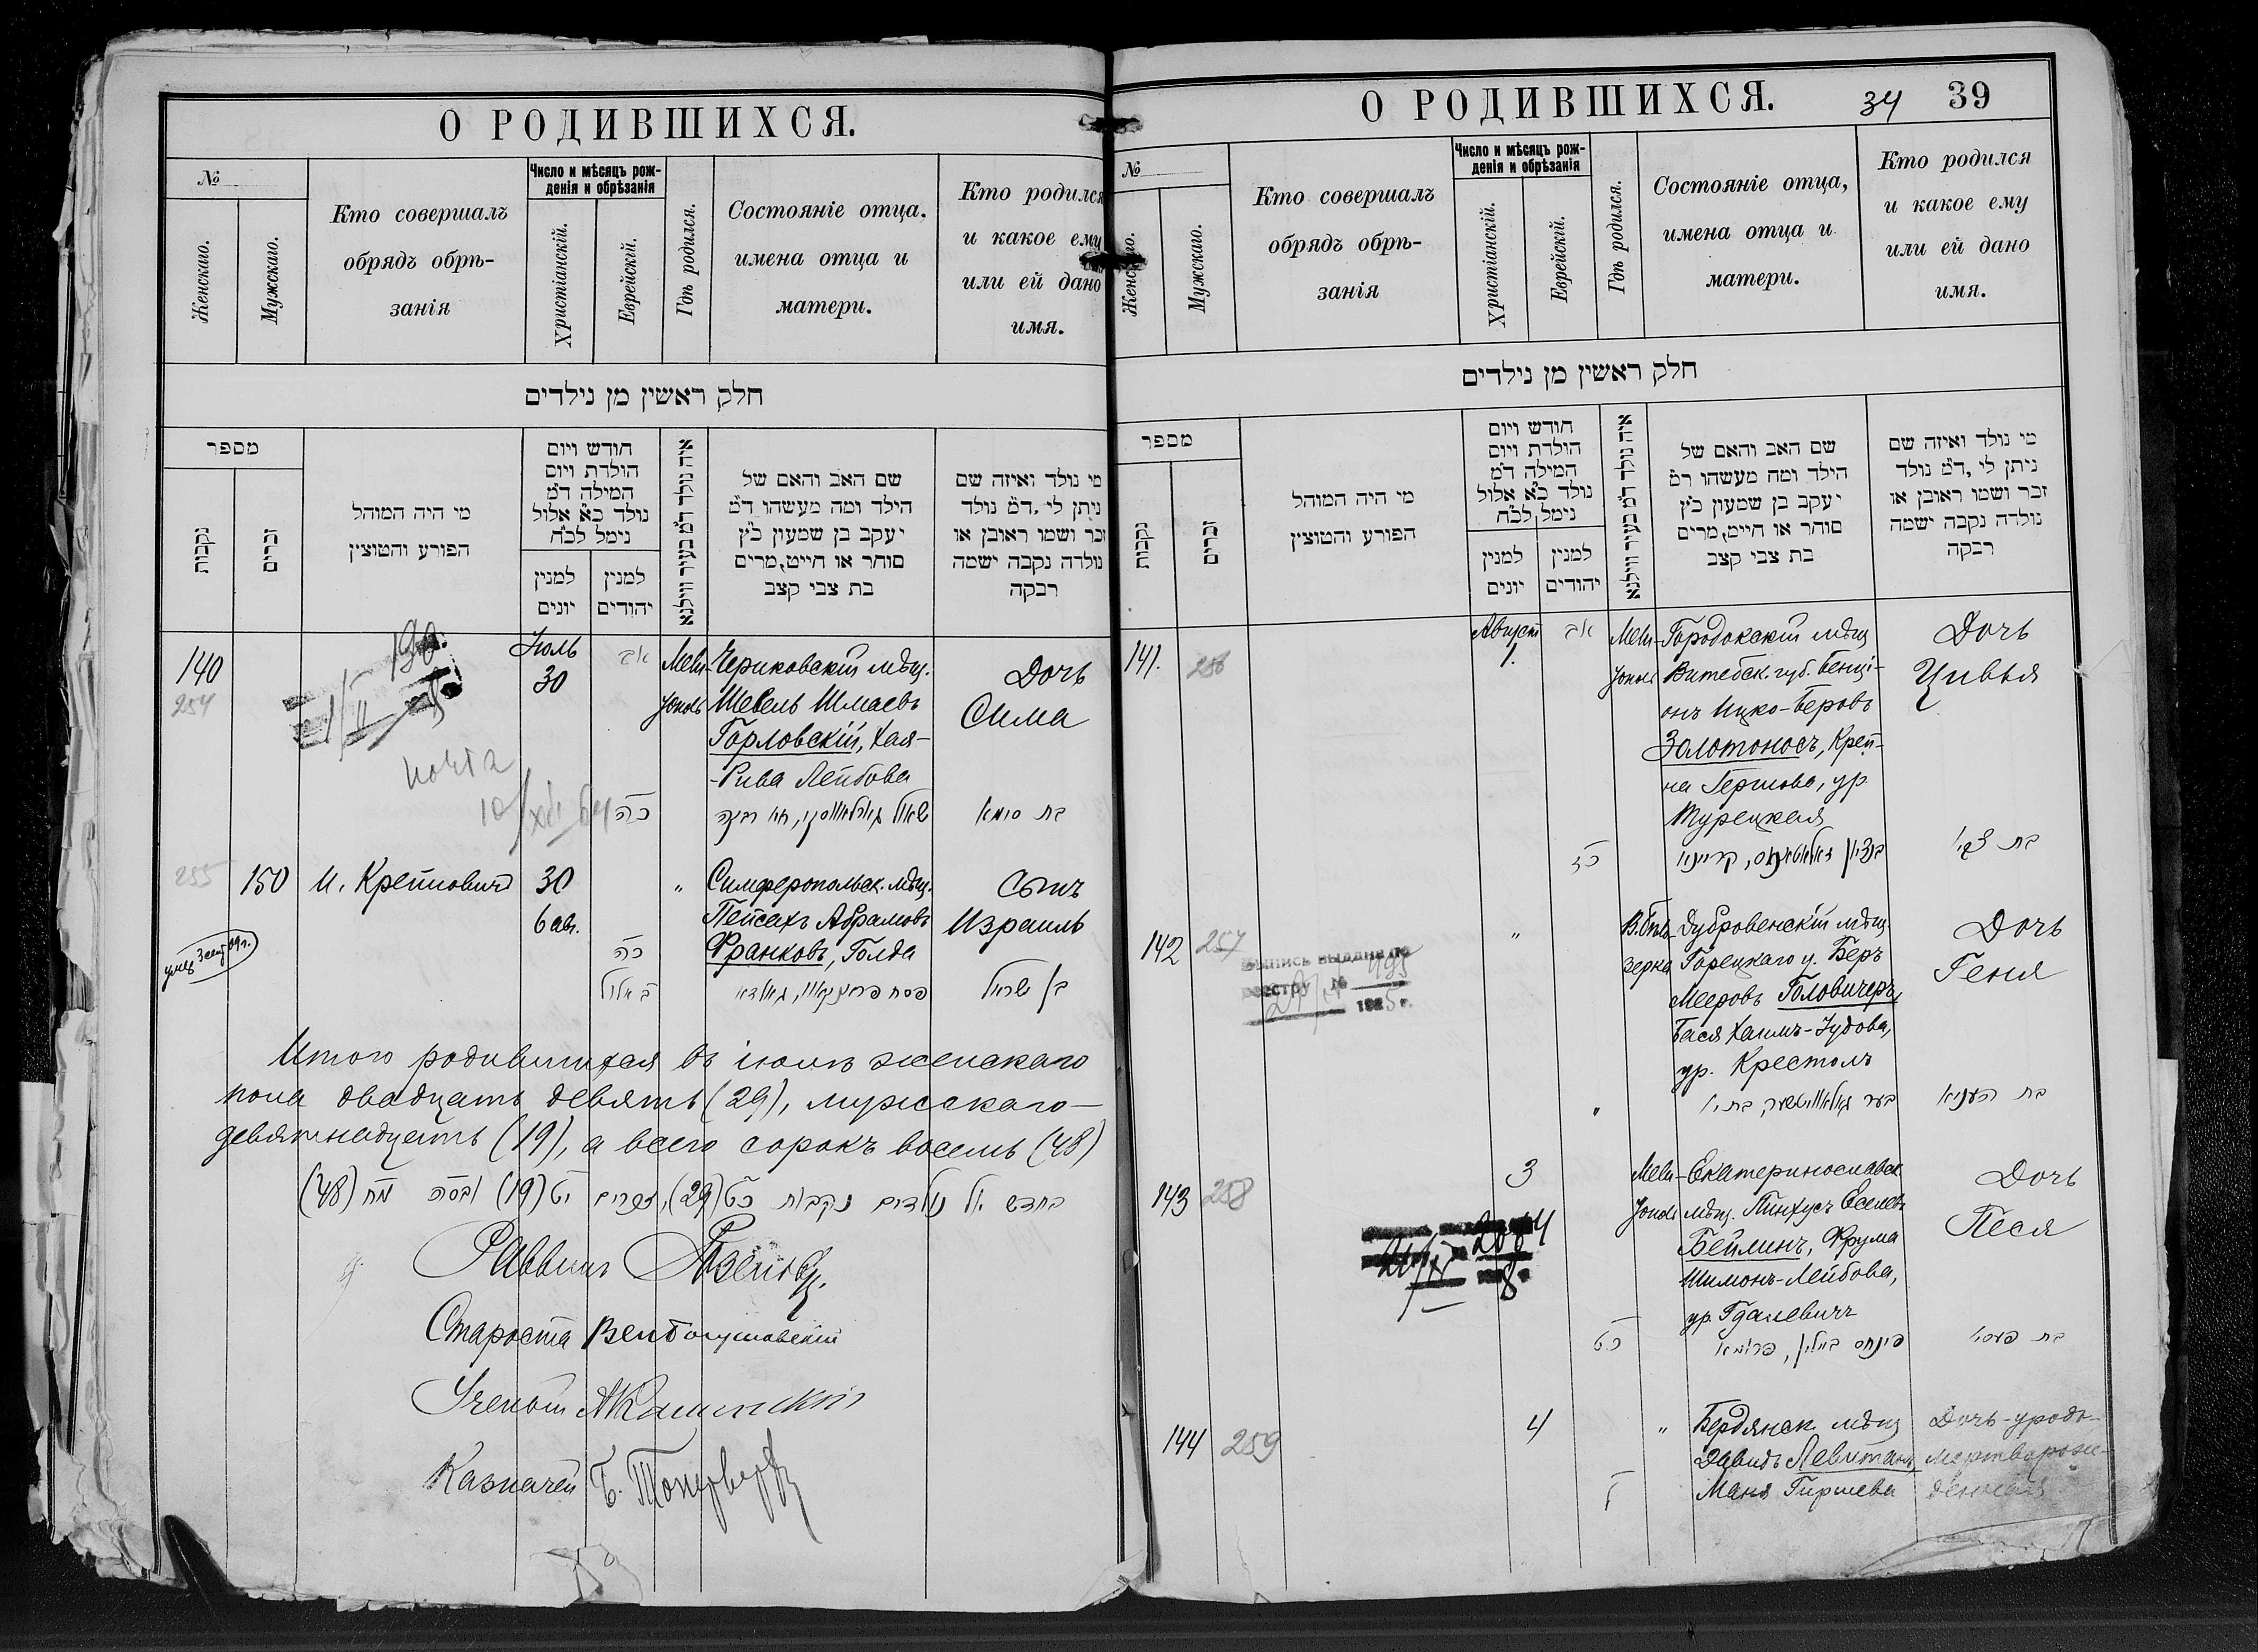 О РОДИВШИХСЯ.
№
Женскаго.
Мужскаго.
Кто совершалъ
обрядъ обрѣ-
занія
Число и мѣсяцъ рож-
денія и обрѣзанія
Христіанскій.
Еврейскій.
Гдѣ родился.
Состояніе отца,
имена отца и
матери.
Кто родился
и какое ему
или ей дано
имя.
חלק ראשין מן נילדים
מספר
נקבות
זכרים
מי היה המוהל
הפורע והטוצין
חודש ויום
הולדת ויום
המילה ד״מ
נולד כ״א אלול
נימל לכ״ח
למנין
יונים
למנין
יהודים
איה נולד ד״מ בעיר ווילנא
שם האב והאם של
הילד ומה מעשהו ד״מ
יעקב בן שמעון כ״ץ
סוחר או חייט, מרים
בת צבי קצב
מי נולד ואיזה שם
ניתן לי, ד״מ נולד
זכר ושמו ראובן או
נולדה נקבה ישמה
רבקה
140
254
Іюль
30
אב
כה
Мели-
тополь
Чериковскій мѣщ.
Шевель Шмаевъ
Горловскій, Хая-
-Рива Лейбова
Дочь
Сима
בת סימא
почта
255
150
И. Крейповичъ
30
6 ав.
כה
ב אלול
"
Симферопольск. мѣщ.
Пейсахъ Абрамовъ
Франковъ, Голда
Сынъ
Израиль
בן ישראל
Итого родившихся въ іюлѣ женскаго
пола двадцать девять (29), мужскаго –
девятнадцать (19), а всего сорокъ восемь (48)
בחדש יול נולדים נקבות כט (29), זכרים יט (19) ובסה מח (48)
Раввинъ
Староста
Ученый
Казначей
О РОДИВШИХСЯ.
34
39
№
Женскаго.
Мужскаго.
Кто совершалъ
обрядъ обрѣ-
занія
Число и мѣсяцъ рож-
денія и обрѣзанія
Христіанскій.
Еврейскій.
Гдѣ родился.
Состояніе отца,
имена отца и
матери.
Кто родился
и какое ему
или ей дано
имя.
חלק ראשין מן נילדים
מספר
נקבות
זכרים
מי היה המוהל
הפורע והטוצין
חודש ויום
הולדת ויום
המילה ד״מ
נולד כ״א אלול
נימל לכ״ח
למנין
יונים
למנין
יהודים
איה נולד ד״מ בעיר ווילנא
שם האב והאם של
הילד ומה מעשהו ד״מ
יעקב בן שמעון כ״ץ
סוחר או חייט, מרים
בת צבי קצב
מי נולד ואיזה שם
ניתן לי, ד״מ נולד
זכר ושמו ראובן או
נולדה נקבה ישמה
רבקה
141.
256
Август
1.
אב
כז
Мели-
тополь
Городокскій мѣщ
Витебск. губ. Бенці-
онъ Ицко-Беровъ
Золотоносъ, Крей-
на Гершова, ур
Турецкая
Дочь
Цивья
142
257
"
В. Бѣло-
зерка
Дубровенскій мѣщ.
Горецкаго у. Беръ
Мееровъ Головичеръ,
Бася Хаимъ-Іудова,
ур. Крестолъ
Дочь
Геня
выпись выдана по
реестру №
143
258
3
כט
Мели-
тополь
Екатеринославск
мѣщ. Пинхусъ Еселевъ
Бейлинъ, Фрума
Шимонъ-Лейбова,
ур. Гдалевичъ
פינחס ביילין, פרומא
Дочь
Песя
בת פעסי
144
259
4
"
Бердянск мѣщ
Давидъ Левитанъ,
Маня Гиршева
Дочь-уродъ-
мертворож-
денная